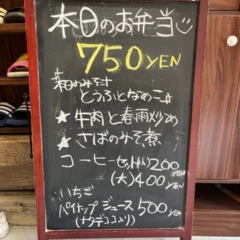 本日のお弁当
750YEN
本日のみそ汁
とうふとなめこ
★牛肉と春雨炒め
★さばのみそ煮
コーヒーセット(小)200
(大)400YEN
いちご
パイナップルジュース500YEN
(ナタデココ入り)